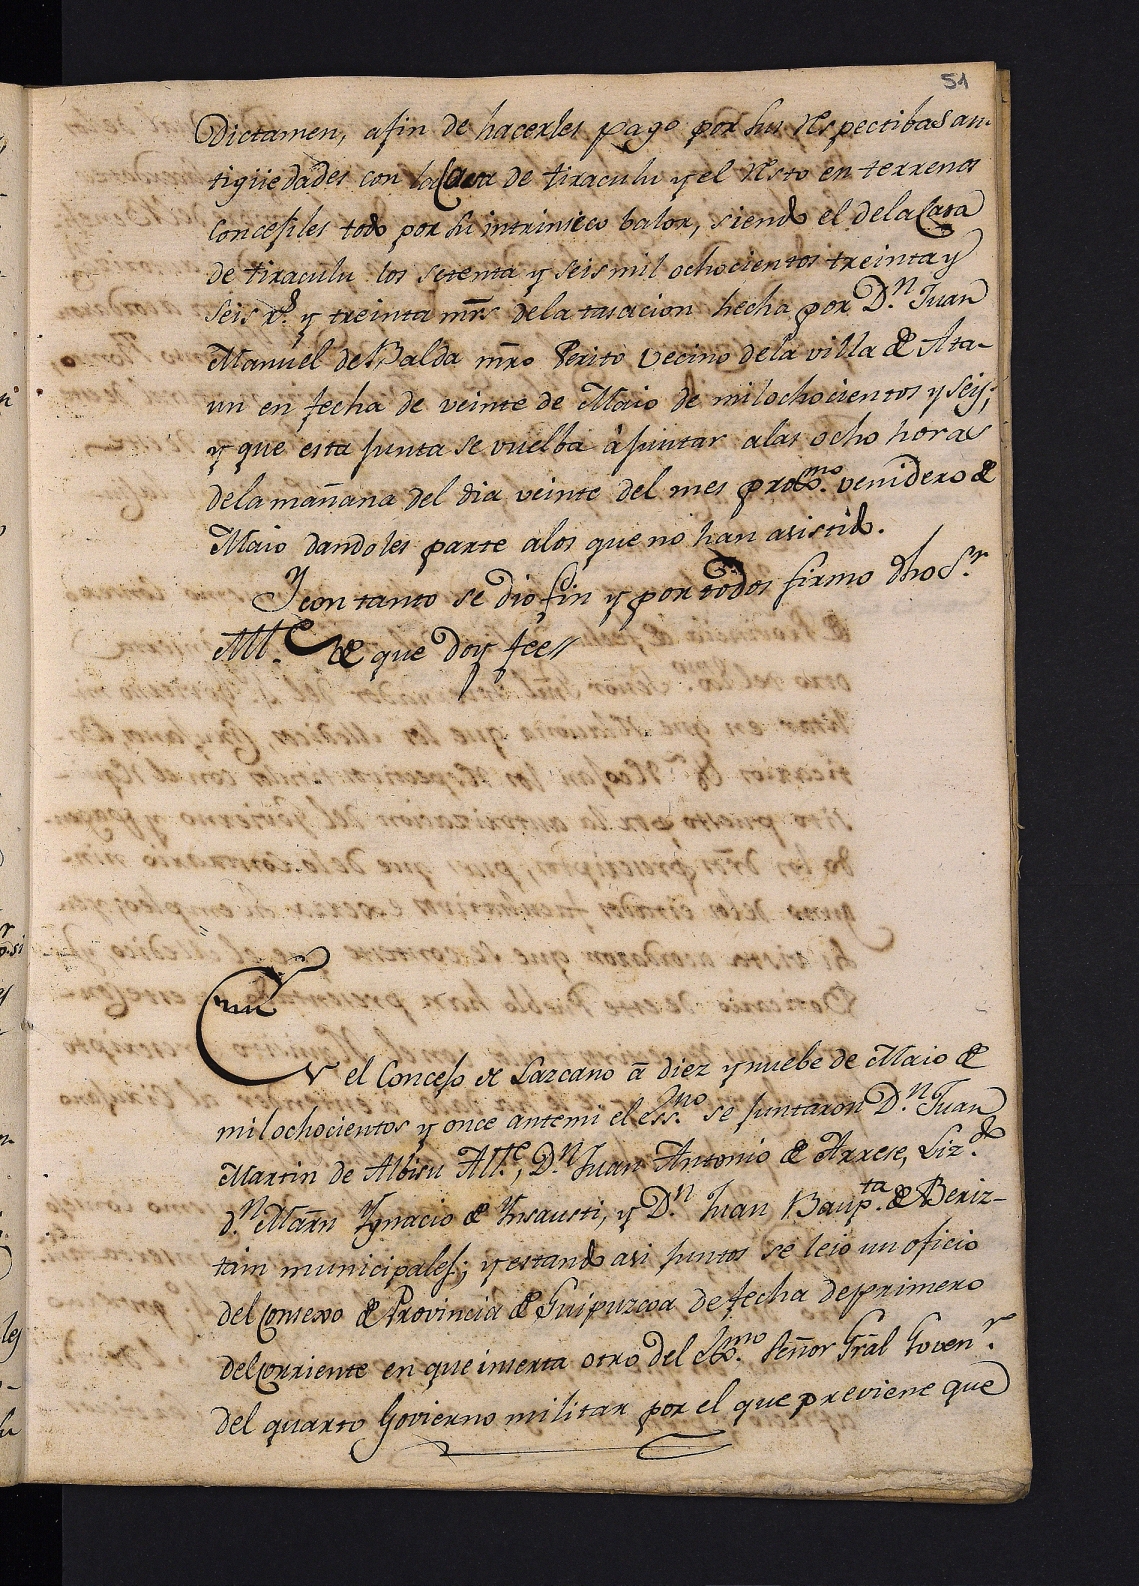 51
Dictamen, afin de hacerles pago por sus respectibas an-
tigüedades con la Casa de tiraculu y el resto en terrenos
Concegiles todo por su intrinseco balor, siendo el dela Casa
de tiraculu los setenta y seis mil ochocientos treinta y
seis rs. y treinta mrs. dela tasacion hecha por D.n Juan
Manuel de Balda mro Perito Vecino dela villa de Ata-
un en fecha de veinte de Maio de mil ochocientos y seis;
y que esta junta se vuelba à juntar alas ocho horas
dela mañana del dia veinte del mes proxmo. venidero de
Maio dandoles parte alos que no han asistido.
Y con tanto se dio fin y por todos firmo dho S.r
Alle. de que doy fee//
En el Concejo de Lazcano â diez y nuebe de Maio de
mil ochocientos y once ante mi el essno. se juntaron D.n Juan
Martin de Albisu Alle., D.n Juan Antonio de Arrese, Liz.do
d.n Marn Ygnacio de Ynsausti, y D.n Juan Baupta. de Beriz-
tain municipales; y estando asi juntos se leio un oficio
del Consexo de Provincia de Guipuzcoa de fecha de primero
del corriente en que inserta otro del Exmo. Señor Gral Goven.r
del quarto Govierno militar por el que previene que